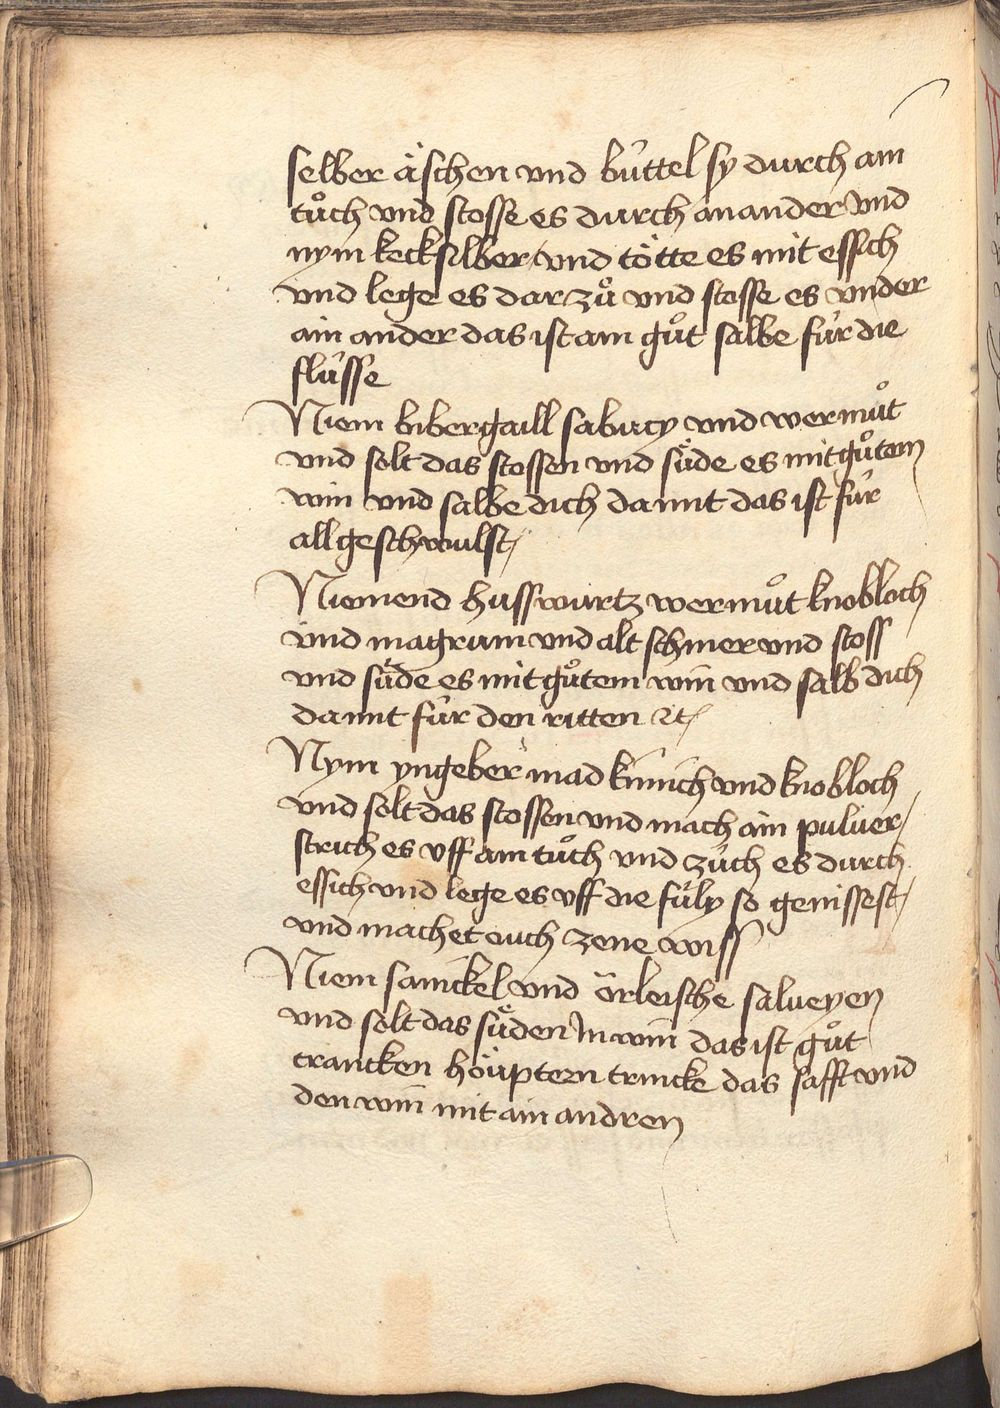 selber äschen vnd büttel sy durch ain
tůch vnd stosse es durch an ander vnd
nym kecksilber / vnd tötte es mit essich
vnd lege es dar zů vnd stosse es vnder
ain ander das ist ain gůt salbe für die
flüsse
Niem bibergaill sabucy vnd wermůt
vnd solt das stossen vnd süde es mit gůtem
win vnd salbe dich damit das ist für
all geschwulst /
Niemend husswurtz wermůt knobloch
vnd magram vnd alt schmer vnd stoss
vnd süde es mit gůtem win vnd salb dich
damit für den ritten ꝛc /
Nym yngeber mad kümich vnd knobloch
vnd solt das stossen vnd mach ain puluer /
strich es vff ain tůch vnd züch es durch
essich vnd lege es vff die füly so genissest /
vnd machet ouch zene wiss
Niem sanickel vnd örleische salueyen
vnd solt das süden In win das ist gůt
crancken höuptern trincke das safft vnd
den win mit ain andren